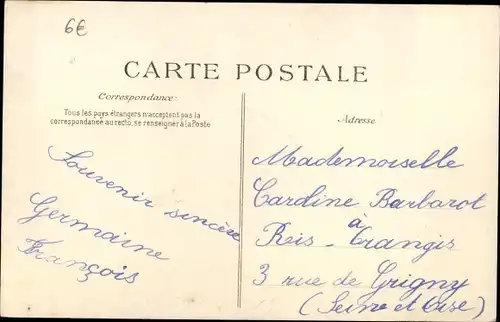 6€
CARTE POSTALE
Correspondance:
Tous les pays étrangers n'acceptent pas la
correspondance au recto, se renseigner à la Poste
Souvenir sincère
Germaine
François
Adresse
Mademoiselle
Cardine Barbarot
à
Ris - Orangis
3 rue de Grigny
(Seine et Oise)